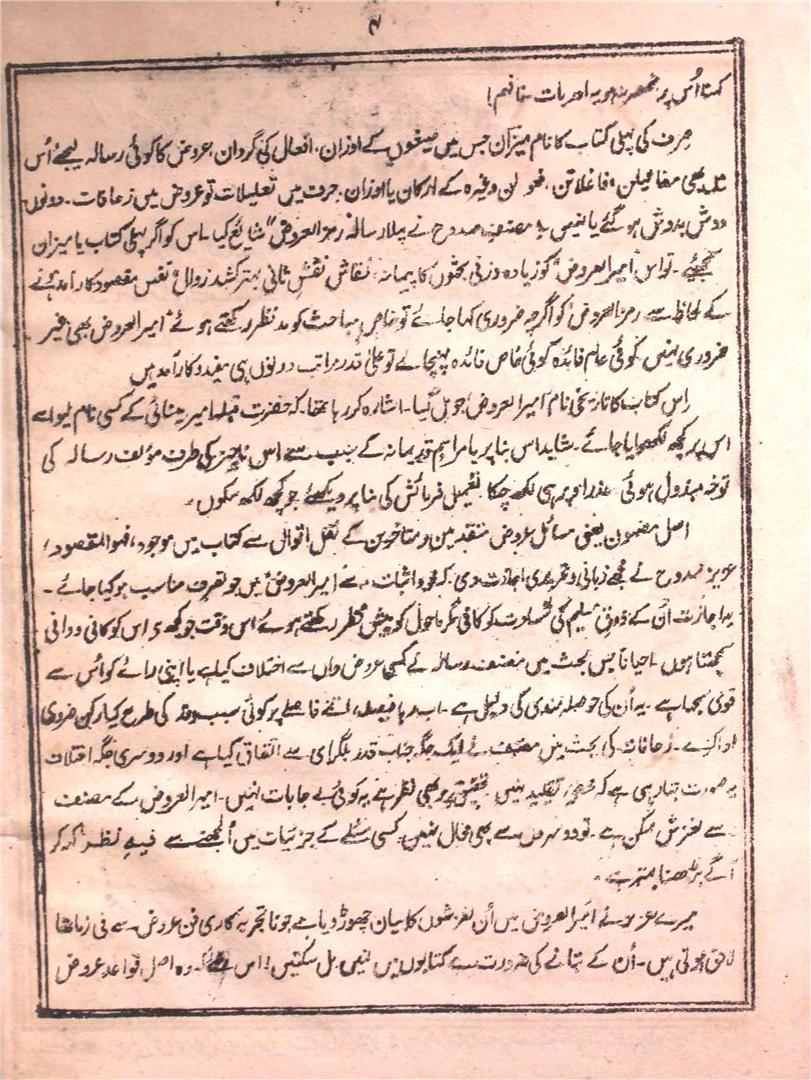 ۴
کہنا اُس پر منحصر ہو یہ اور بات فافہم!
صرف کی پہلی کتاب کا نام میزان جس میں صیغوں کے اوزان، افعال کی گردان، عروض کا کوئی رسالہ لیجئے اُس
میں بھی مفاعیلن، فاعلاتن، فعولن وغیرہ کے ارکان یا اوزان، صرف میں تعلیلات تو عروض میں زحافات۔ دونوں
دوش بدوش ہو گئے یا نہیں مصنف ممدوح نے پہلا رسالہ "رمز العروض" شایع کیا۔ اس کو اگر پہلی کتاب یا میزان
سمجھئے۔ تو اس "امیر العروض" کو زیادہ وزنی بحثوں کا پیمانہ، نقاش نقشِ ثانی بہتر کشد زاول" نفس مقصود کار آمد ہونے
کے لحاظ سے رمز العروض کو اگرچہ ضروری کہا جائے تو خاص مباحث کو مد نظر رکھتے ہوئے "امیر العروض" بھی غیر
ضروری نہیں کوئی عام فائدہ کوئی خاص فائدہ پہنچائے تو علیٰ قدر مراتب دونوں ہی مفید و کار آمد ہیں
اس کتاب کا تاریخی نام امیر العروض جو مل گیا۔ اشارہ کر رہا تھا۔ کہ حضرت قبلہ امیر مینائی کے کسی نام لیوا سے
اس پر کچھ لکھوایا جائے۔ شاید اس بنا پر یا مراسمِ قدیمانہ کے سبب سے اس ناچیز کی طرف مؤلف رسالہ کی
توجہ مبذول ہوئی عذر اوپر ہی لکھ چکا۔ تعمیل فرمائش کی بنا پر دیکھئے جو کچھ لکھ سکوں۔
اصل مضمون یعنی مسائل عروض متقدمین و متاخرین کے نقل اقوال سے کتاب میں موجود، فہو المقصود،
عزیز ممدوح نے مجھے زبانی و تحریری اجازت دی کہ محو و اثبات سے امیر العروض میں جو تصرف مناسب ہو کیا جائے۔
یہ اجازت اُن کے ذوق سلیم کی شہادت کو کافی مگر ماحول کو پیش نظر رکھتے ہوئے اس وقت جو کچھ اس کو کافی و وافی
سمجھتا ہوں۔ احیاناً جس بحث میں مصنف رسالہ نے کسی عروض داں سے اختلاف کیا ہے یا اپنی رائے کو اُس سے
قوی سمجھا ہے۔ یہ اُن کی حوصلہ مندی کی دلیل ہے۔ اب رہا فیصلہ، اتنے فاصلے پر کوئی سبب و وتد کی طرح کیا رکن ضروری
ادا کرے۔ زحافات کی بحث میں مصنف نے ایک جگہ جناب قدر بلگرامی سے اتفاق کیا ہے اور دوسری جگہ اختلاف
یہ صورت بتا رہی ہے کہ تقلید نہیں تحقیق پر بھی نظر ہے یہ کوئی بے جا بات نہیں۔ امیر العروض کے مصنف
سے لغزش ممکن ہے۔ تو دوسروں سے بھی محال نہیں۔ کسی مسئلے کے جزئیات میں اُلجھنے سے فیہ نظر کہہ کر
آگے بڑھنا بہتر ہے۔
میرے عزیز نے امیر العروض میں اُن لغزشوں کا بیان چھوڑ دیا ہے جو ناتجربہ کاری فن عروض سے فی زماننا
لاحق ہوتی ہیں۔ اُن کے بتانے کی ضرورت ہے کتابوں میں نہیں مل سکتیں! اس لئے۔ وہ اصل قواعد عروض